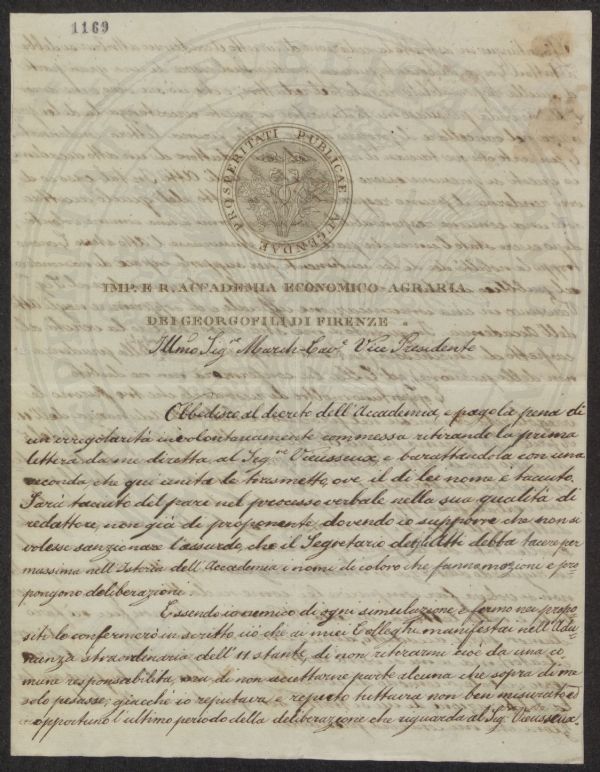 1169
PROSPERITATI PUBLICAE AUGENDAE
IMP. E R. ACCADEMIA ECONOMICO-AGRARIA
DEI GEORGOFILI DI FIRENZE.
Illmo Sigre March. Cav.e Vice Presidente
Obbedisco al decreto dell'Accademia, e pago la pena di
un irregolarità involontariamente commessa ritirando la prima
lettera da me diretta al Segre Vieusseux, e barattandola con una
seconda che qui unita le trasmetto, ove il di lei nome è taciuto.
Sarà taciuto del pari nel processo verbale nella sua qualità di
redattore, non già di proponente dovendo io supporre che non si
volesse sanzionare l'assurdo, che il Segretario degli Atti debba tacere per
massima nell'Istoria dell'Accademia i nomi di coloro che fanno mozioni e pro
pongono deliberazioni.
Essendo io nemico di ogni simulazione, e fermo nei propo
siti lo confermerò in scritto ciò che ai miei Colleghi manifestai nell'Adu
nanza straordinaria dell'11 stante, di non ritirarmi cioè da una co
mune responsabilità, ma di non accettarne parte alcuna che sopra di me
solo pesasse; giacchè io reputava e reputo tuttavia non ben misurato ed
opportuno l'ultimo periodo della deliberazione che riguarda al Sigre Vieusseux.